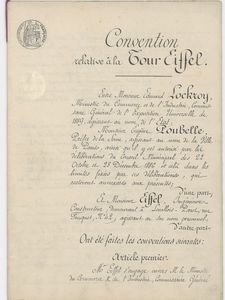 Convention
relative à la Tour Eiffel.
Entre Monsieur Edouard Lockroy,
Ministre du Commerce et de l'Industrie, Commis-
saire Général de l'Exposition Universelle de
1889, agissant au nom de l'Etat,
Monsieur Eugène Poubelle,
Préfet de la Seine, agissant au nom de la Ville
de Paris, ainsi qu'il y est autorisé par les
délibérations du Conseil Municipal des 22
Octobre et 23 Décembre 1886 et cela dans les
limites fixées par ces délibérations, qui
resteront annexées aux présentes,
D'une part,
Et Monsieur Eiffel, Ingénieur-
Constructeur demeurant à Levallois-Perret, rue
Fouquet, agissant en son nom personnel
D'autre part,
Ont été faites les conventions suivantes:
Article premier
Mr Eiffel s'engage envers M. le Ministre
du Commerce et de l'Industrie, Commissaire Général